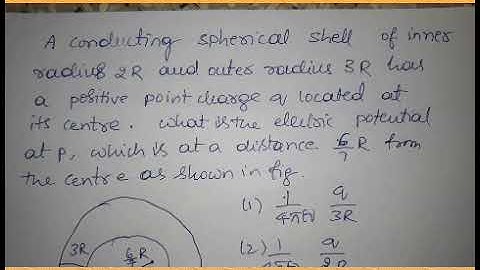 A conducting spherical shell of inner
radius 2R and outer radius 3R has
a positive point charge q located at
its centre. What is the electric potential
at P, which is at a distance 6/7 R from
the centre as shown in fig.
(1) 1/4πε0 q/3R
3R
R
(2) 1
q